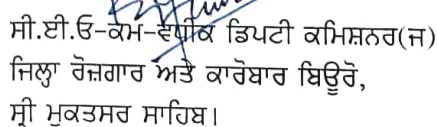 ਸੀ.ਈ.ਓ-ਕਮ-ਵਧੀਕ ਡਿਪਟੀ ਕਮਿਸ਼ਨਰ(ਜ)
ਜਿਲ੍ਹਾ ਰੋਜ਼ਗਾਰ ਅਤੇ ਕਾਰੋਬਾਰ ਬਿਊਰੋ,
ਸ੍ਰੀ ਮੁਕਤਸਰ ਸਾਹਿਬ।